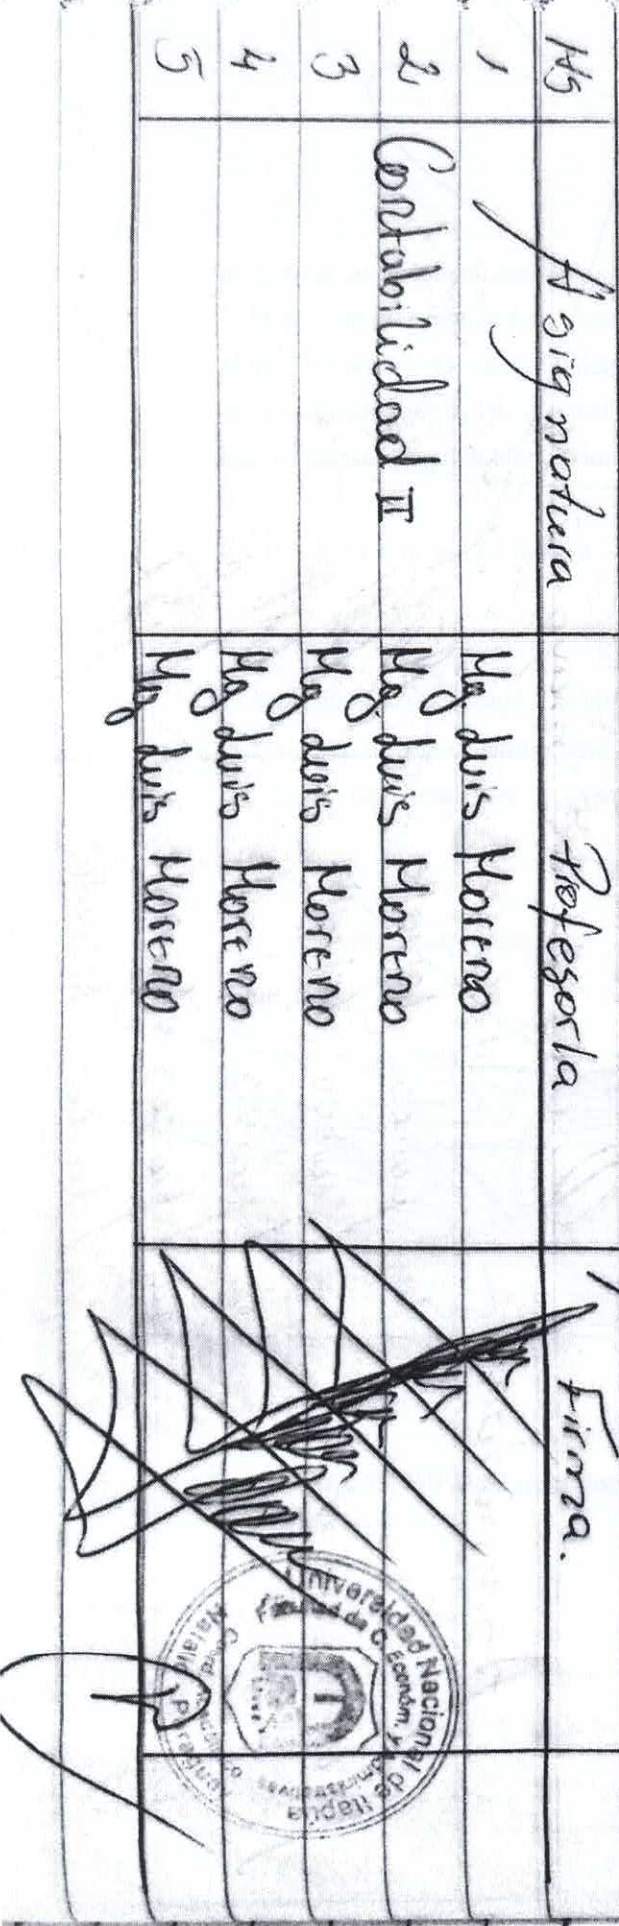 Hs Asignatura Profesor/a Firma.
1 Mg Luis Moreno
2 Contabilidad II Mg Luis Moreno
3 Mg Luis Moreno
4 Mg Luis Moreno
5 Mg Luis Moreno
Universidad Nacional de Itapúa
Facultad de C. Económ. y Administrativas
Natalio Paraguay